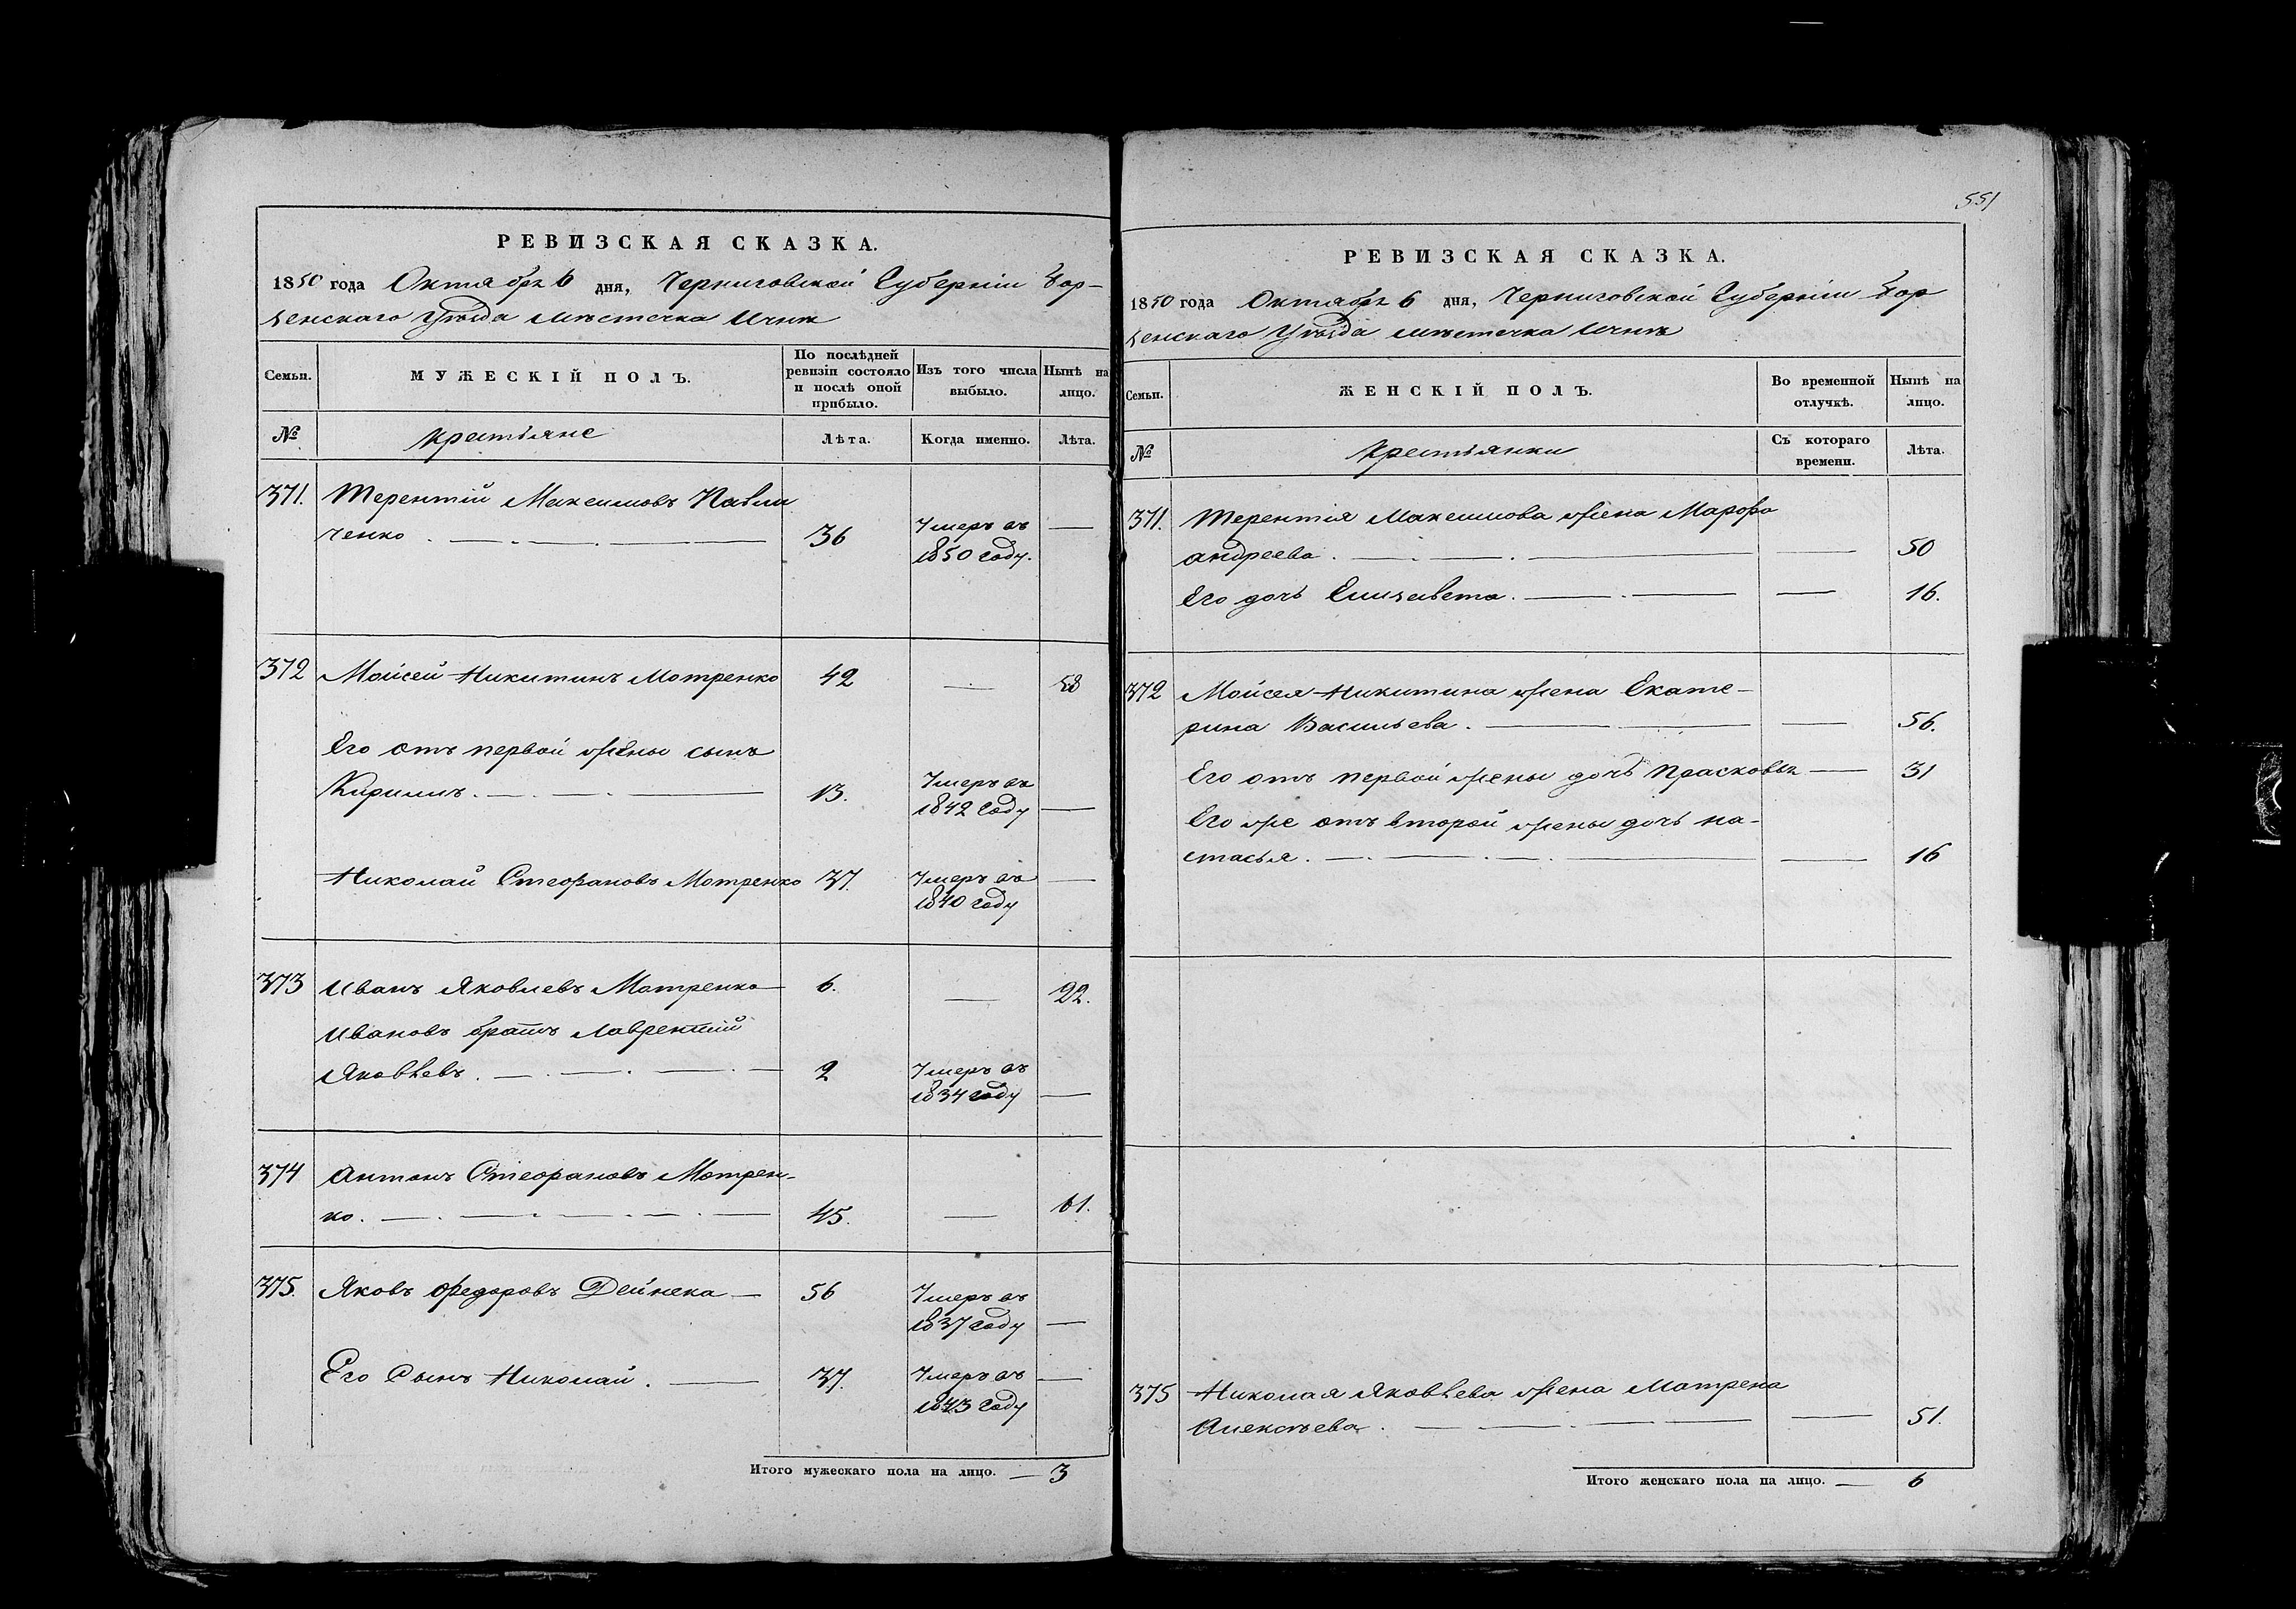 РЕВИЗСКАЯ СКАЗКА.
1850 года Октября 6 дня, Черниговской Губерніи Бор-
зенскаго Уѣзда мѣстечка Ични
Семьи. МУЖЕСКІЙ ПОЛЪ. По послѣдней ревизіи состояло и послѣ оной прибыло. Изъ того числа выбыло. Нынѣ на лицо.
№ Крестьяне Лѣта. Когда именно. Лѣта.
371. Терентій Максимовъ Павли
ченко 36 Умеръ въ 1850 году. —
372 Мойсей Никитинъ Мотренко 42 — 58
Его отъ первой жены сынъ
Кирилъ. 13. Умеръ въ 1842 году —
Николай Стефановъ Мотренко 37. Умеръ въ 1840 году —
373 Иванъ Яковлевъ Мотренко 6. — 22.
Ивановъ братъ Лаврентій
Яковлевъ. 2 Умеръ въ 1834 году —
374 Антонъ Стефановъ Мотрен-
ко. 45. — 61.
375. Яковъ Федоровъ Дейнека — 56 Умеръ въ 1837 году —
Его Сынъ Николай. 37. Умеръ въ 1843 году —
Итого мужескаго пола на лицо. — 3
551
РЕВИЗСКАЯ СКАЗКА.
1850 года Октября 6 дня, Черниговской Губерніи Бор
зенскаго Уѣзда мѣстечка Ични
Семьи. ЖЕНСКІЙ ПОЛЪ. Во временной отлучкѣ. Нынѣ на лицо.
№ Крестьянки Съ котораго времени. Лѣта.
371. Терентія Максимова жена Марфа
Андреева. — 50
Его дочь Елизавета. — 16.
372 Мойсея Никитина жена Екате-
рина Васильева. — 56.
Его отъ первой жены дочь Прасковья — 31
Его же отъ второй жены дочь На-
стасья. — 16
375 Николая Яковлева жена Матрена
Алексѣева. — 51.
Итого женскаго пола на лицо. — 6